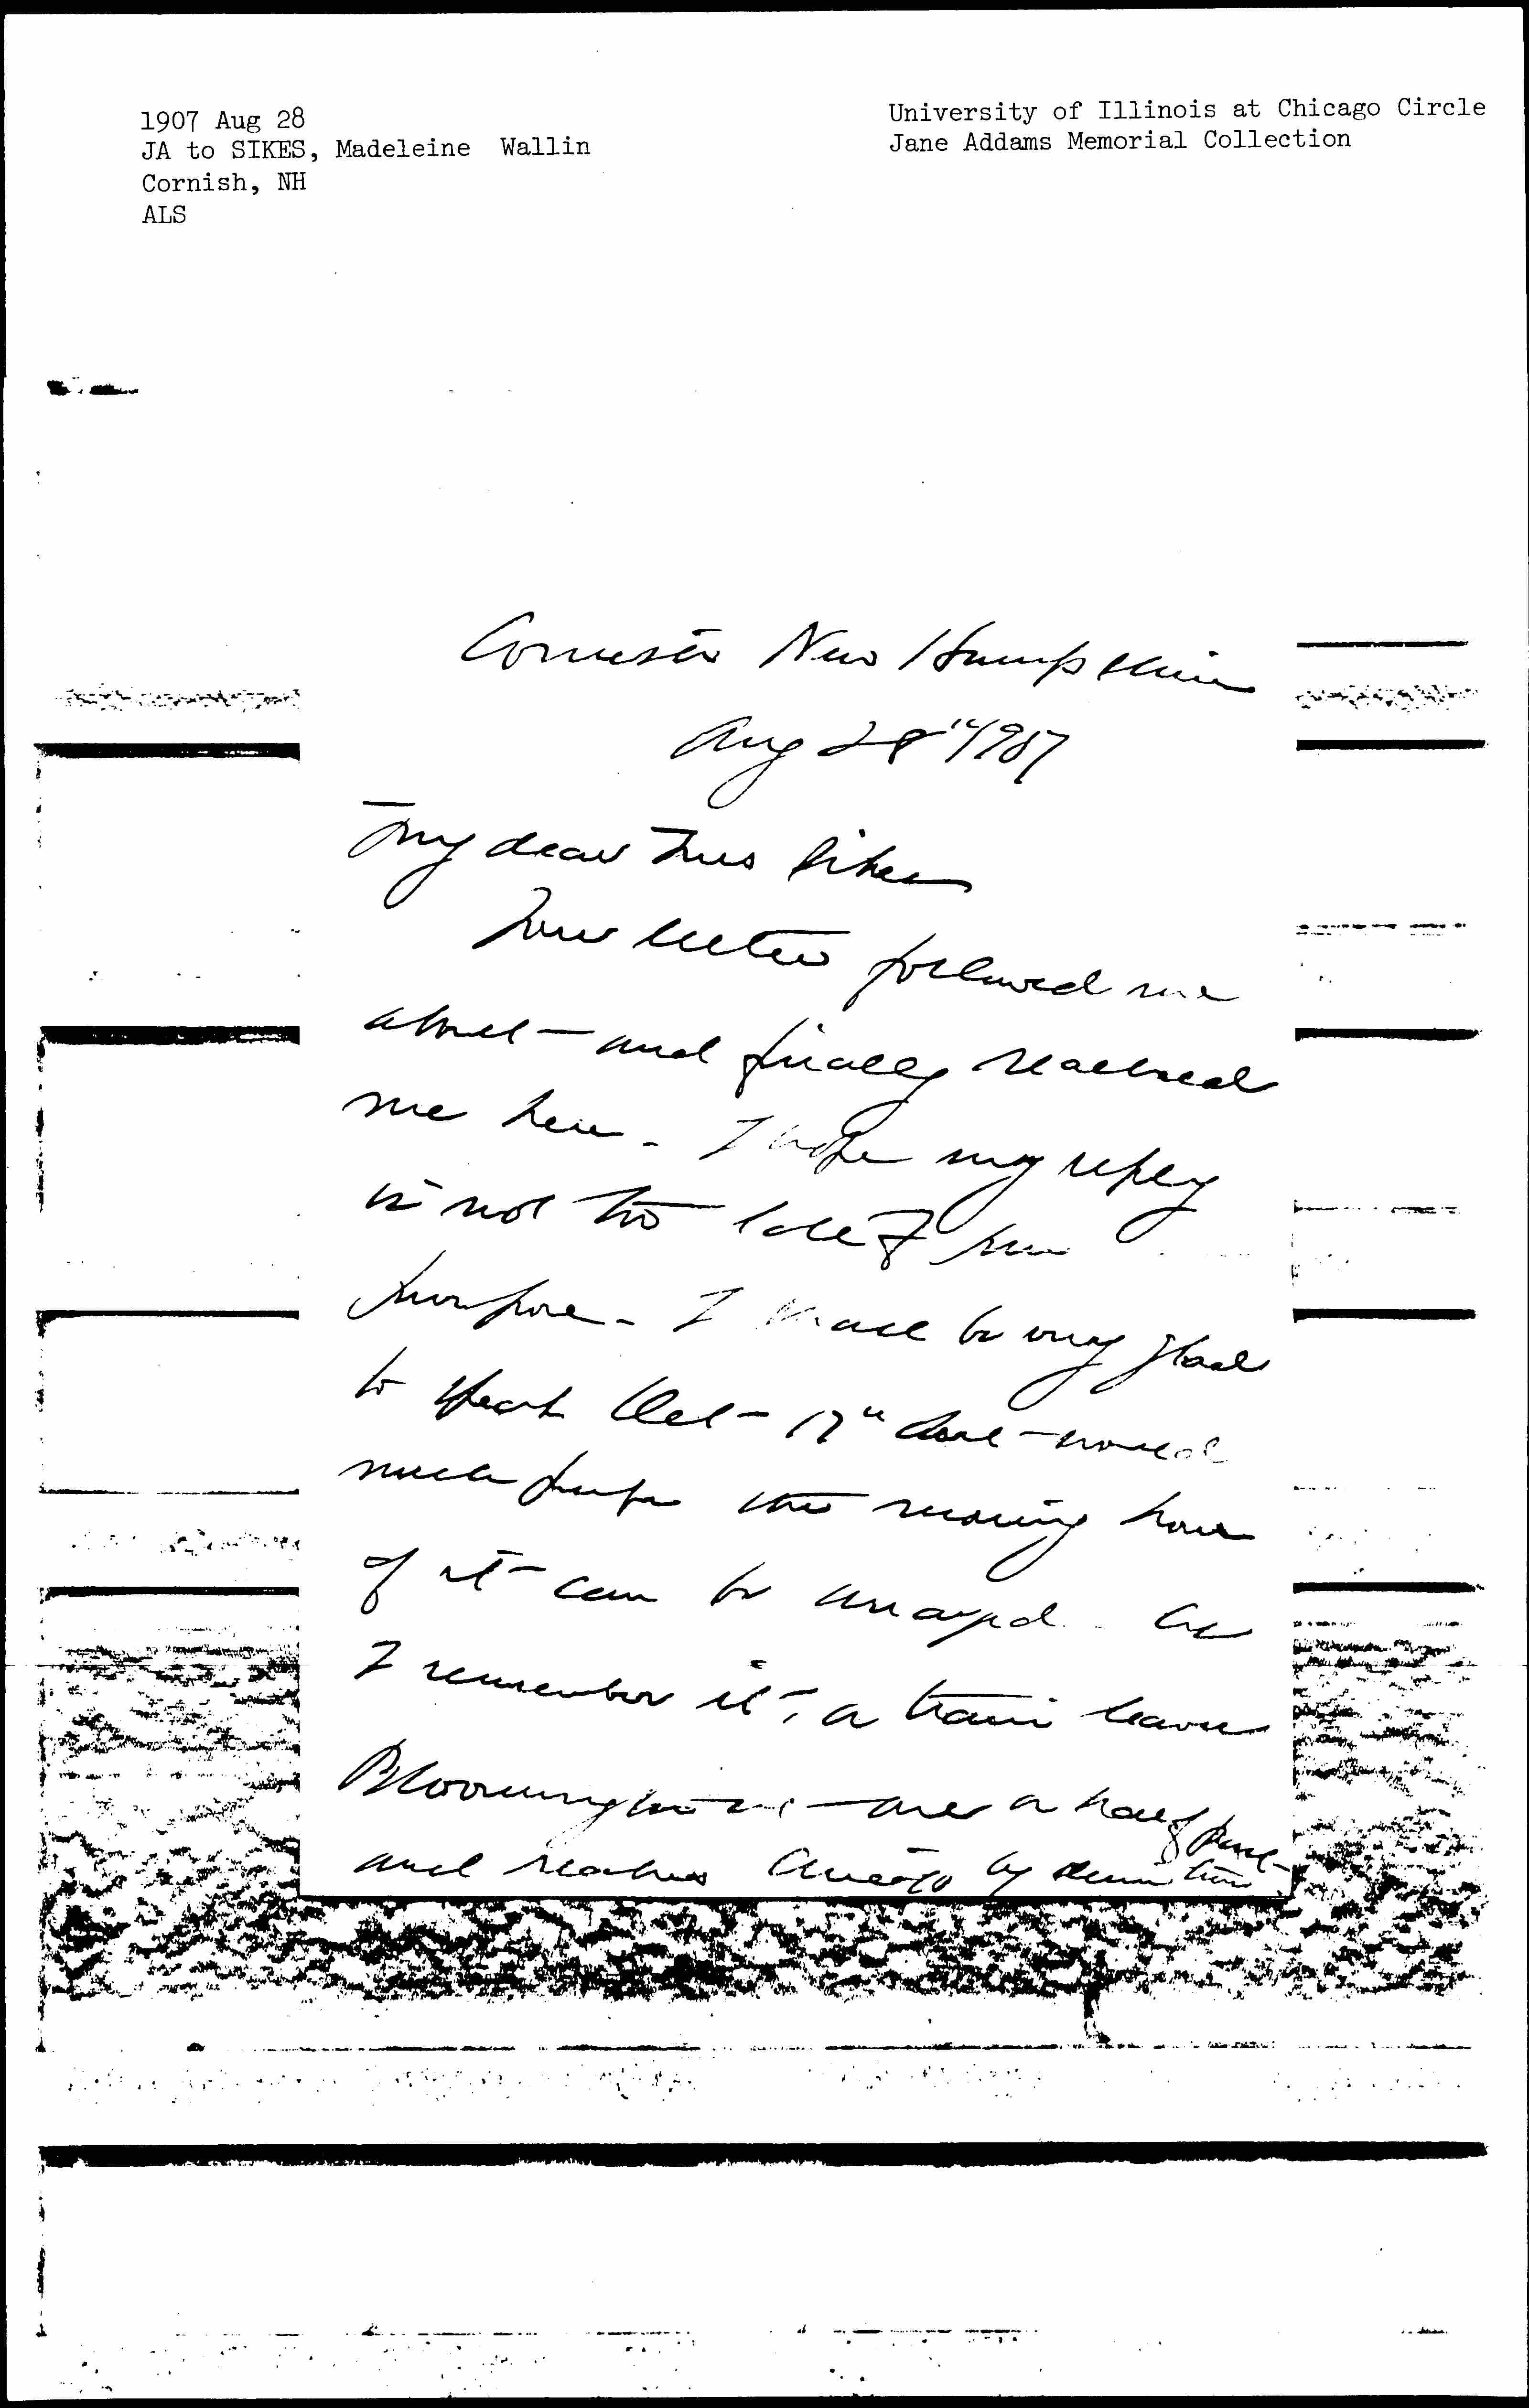 1907 Aug 28
JA to SIKES, Madeleine Wallin
Cornish, NH
ALS
University of Illinois at Chicago Circle
Jane Addams Memorial Collection
Cornish New Hampshire
Aug 28" 1907
My dear Mrs Sikes
Your letter followed me
about and finally reached
me here - I hope my reply
is not too late for your
purpose - I shall be very glad
to speak Oct - 17" but would
much prefer the morning hour
if it can be arranged. As
I remember it, a train leaves
Bloomington at half past
and reaches Chicago by dinner time